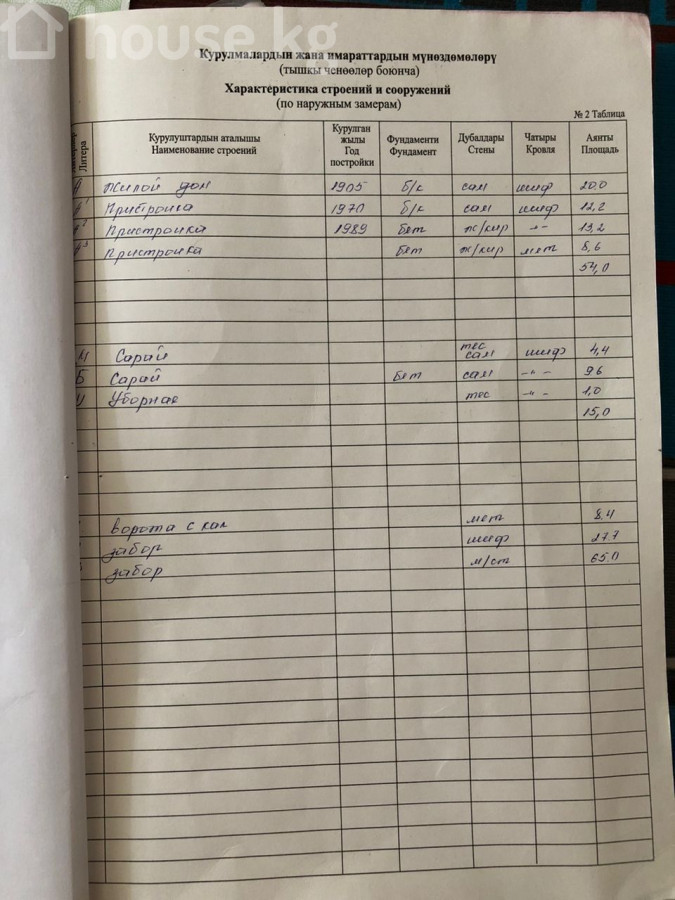 house.kg
Курулмалардын жана имараттардын мүнөздөмөлөрү
(тышкы ченөөлөр боюнча)
Характеристика строений и сооружений
(по наружным замерам)
№ 2 Таблица
Литера
Курулуштардын аталышы
Наименование строений
Курулган
жылы
Год
постройки
Фундаменти
Фундамент
Дубалдары
Стены
Чатыры
Кровля
Аянты
Площадь
А Жилой дом 1905 б/к сам шиф 20,0
Пристройка 1970 б/к сам шиф 12,2
Пристройка 1989 бет ж/кир -"- 13,2
Пристройка бет ж/кир мет 8,6
54,0
Сарай тес сам шиф 4,4
Б Сарай бет сам -"- 9,6
Уборная тес -"- 1,0
15,0
ворота с кал мет 8,4
забор шиф 27,7
забор м/ст 65,0